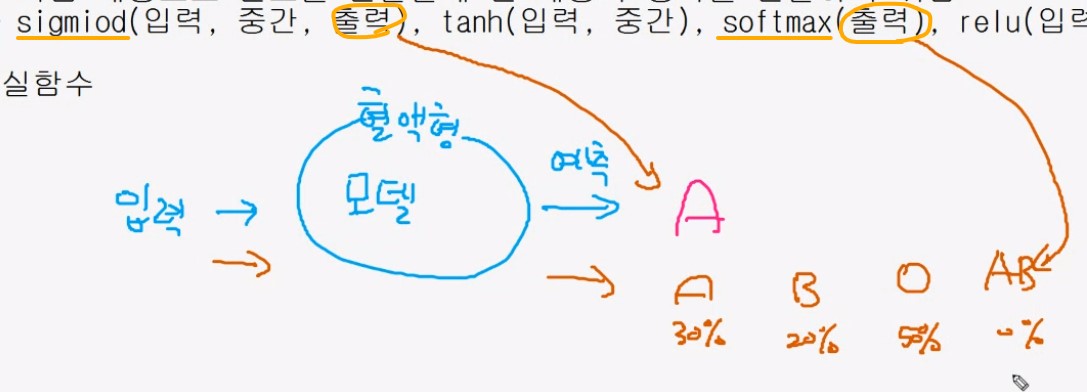 sigmiod(입력, 중간, 출력), tanh(입력, 중간), softmax(출력), relu(입력
실함수
혈액형
모델
예측
입력
A
A B O AB
30% 20% 50% 0%